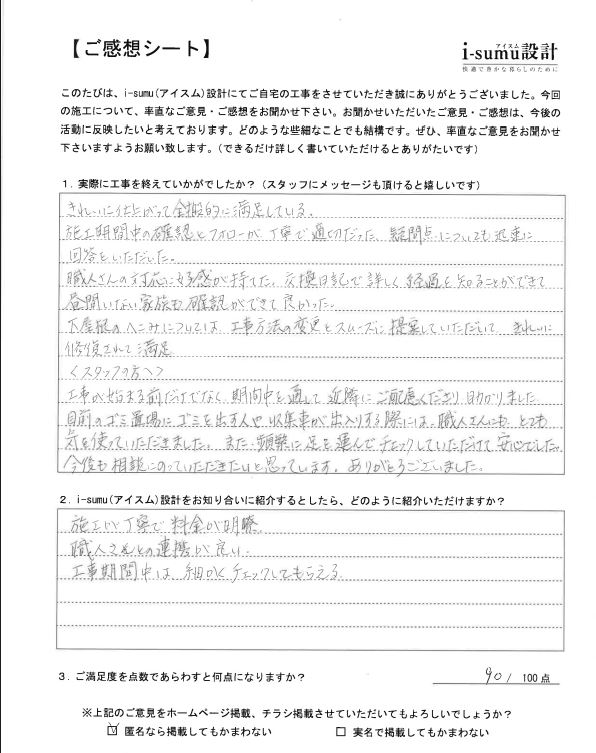 【ご感想シート】
アイスム
i-sumu設計
快適で豊かな暮らしのために
このたびは、i-sumu(アイスム)設計にてご自宅の工事をさせていただき誠にありがとうございました。今回
の施工について、率直なご意見・ご感想をお聞かせ下さい。お聞かせいただいたご意見・ご感想は、今後の
活動に反映したいと考えております。どのような些細なことでも結構です。ぜひ、率直なご意見をお聞かせ
下さいますようお願い致します。(できるだけ詳しく書いていただけるとありがたいです)
1．実際に工事を終えていかがでしたか？(スタッフにメッセージも頂けると嬉しいです)
きれいに仕上がって全般的に満足している。
施工期間中の確認とフォローが丁寧で適切だった。疑問点についても迅速に
回答をいただいた。
職人さんの対応に好感が持てた。交換日記で詳しく経過を知ることができて
昼間いない家族も確認ができて良かった。
下屋根のへこみについては、工事方法の変更とスムーズに提案していただいて きれいに
修復されて満足
〈スタッフの方へ〉
工事の始まる前だけでなく、期間中を通して近隣にご配慮くださり助かりました
目前のゴミ置場にゴミを出す人や収集車が出入りする際には、職人さんにも、とても
気を使っていただきました。また、頻繁に足を運んでチェックしていただけて安心でした。
今後も相談にのっていただきたいと思っています。ありがとうございました。
2．i-sumu(アイスム)設計をお知り合いに紹介するとしたら、どのように紹介いただけますか？
施工が丁寧で料金が明瞭
職人さんとの連携が良い
工事期間中は細かくチェックしてもらえる
3．ご満足度を点数であらわすと何点になりますか？ 90/ 100点
※上記のご意見をホームページ掲載、チラシ掲載させていただいてもよろしいでしょうか？
☑ 匿名なら掲載してもかまわない □ 実名で掲載してもかまわない